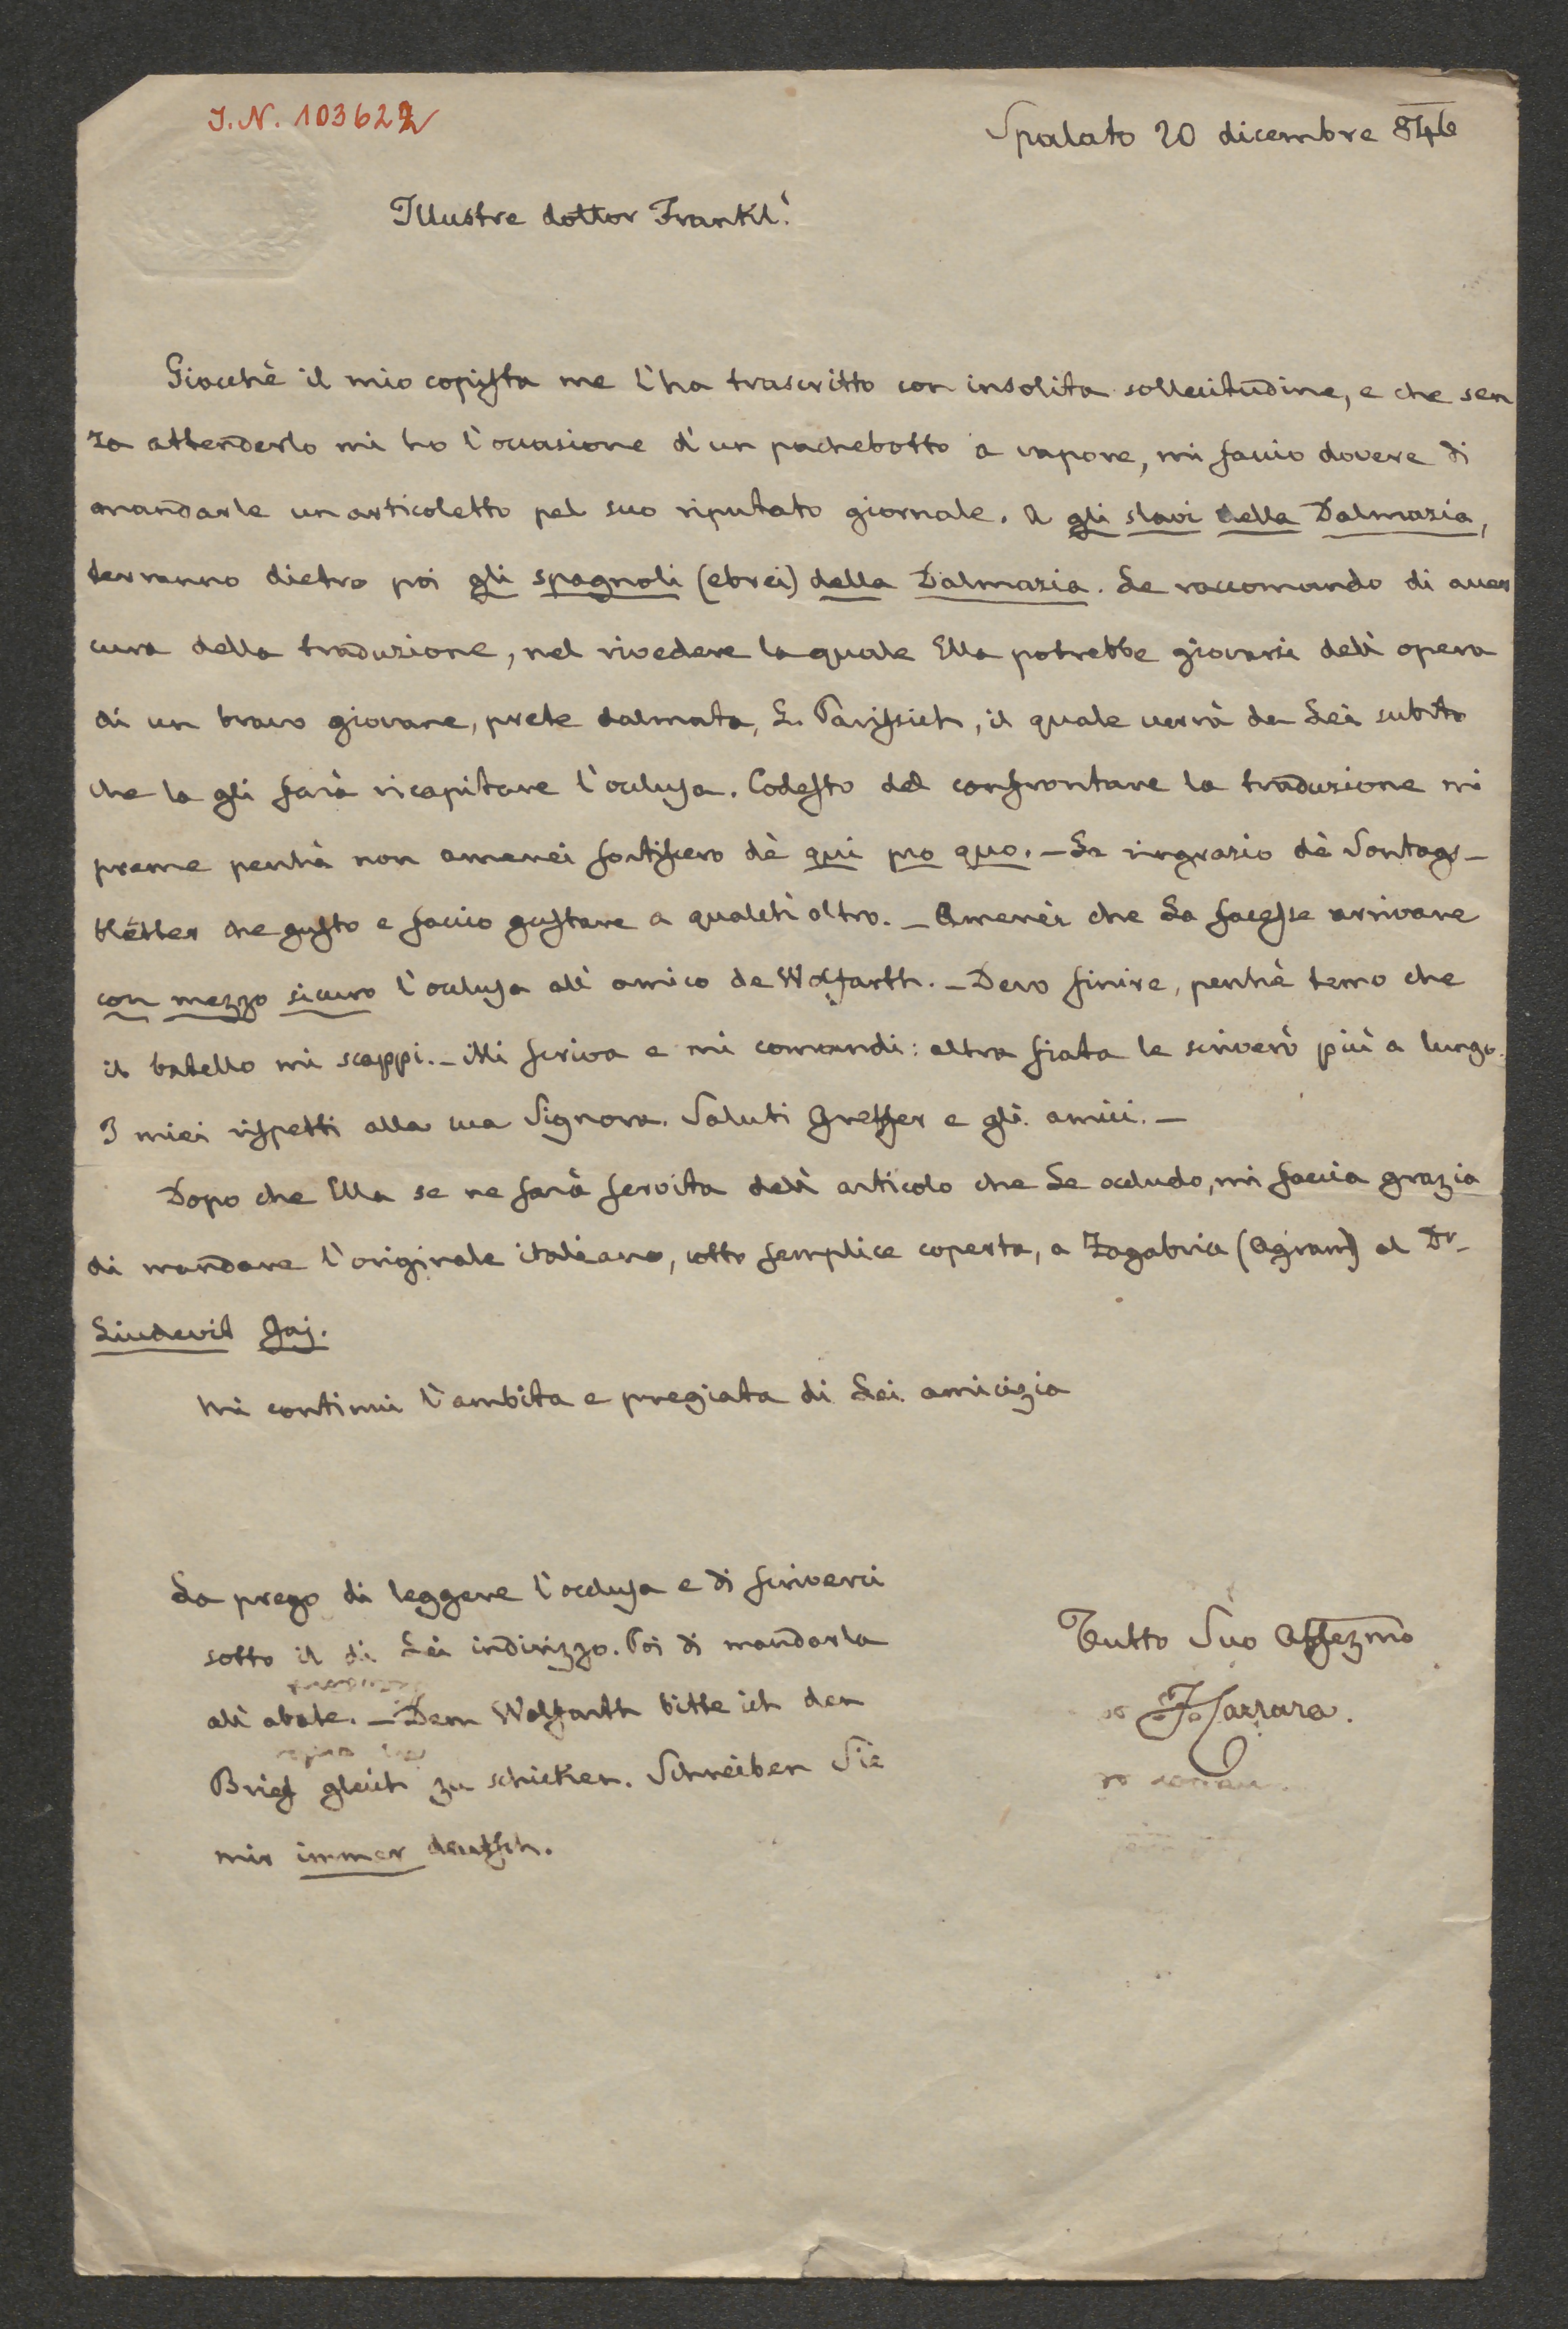 J.N. 103622
Spalato 20 dicembre 846
Illustre dottor Frankl!
Giacchè il mio copista me l'ha trascritto con insolita sollecitudine, e che sen
za attenderlo mi ho l'occasione d'un pachebotto a vapore, mi faccio dovere di
mandarle un articoletto pel suo riputato giornale. A gli slavi della Dalmazia,
terranno dietro poi gli spagnoli (ebrei) della Dalmazia. Le raccomando di aver
cura della traduzione, nel rivedere la quale Ella potrebbe giovarsi dell' opera
di un bravo giovane, prete dalmata, L. Parissich, il quale verrà da Lei subito
che la gli farà ricapitare l'occlusa. Codesto del confrontare la traduzione mi
preme perchè non amerei fortissero de' qui pro quo. – La ringrazio de' Sontags-
blätter che gusto e faccio gustare a qualch' altro. – Amerei che La facesse arrivare
con mezzo sicuro l'occlusa all' amico de Wolfarth. – Devo finire, perchè temo che
il batello mi scappi. – Mi scriva e mi comandi: altra fiata le scriverò più a lungo.
I miei rispetti alla sua Signora. Saluti Greffer e gli amici. –
Dopo che Ella se ne sarà servita dell' articolo che Le occludo, mi faccia grazia
di mandare l'originale italiano, sotto semplice coperta, a Zagabria (Agram) al Dr
Liudevit Gaj.
Mi continui l'ambita e pregiata di Lei amicizia
La prego di leggere l'occlusa e di scriverci
sotto il di Lei indirizzo. Poi di mandarla
all' abate. – Dem Wolfarth bitte ich den
Brief gleich zu schicken. Schreiben Sie
mir immer deutsch.
Tutto Suo Affezmo
F. Carrara.